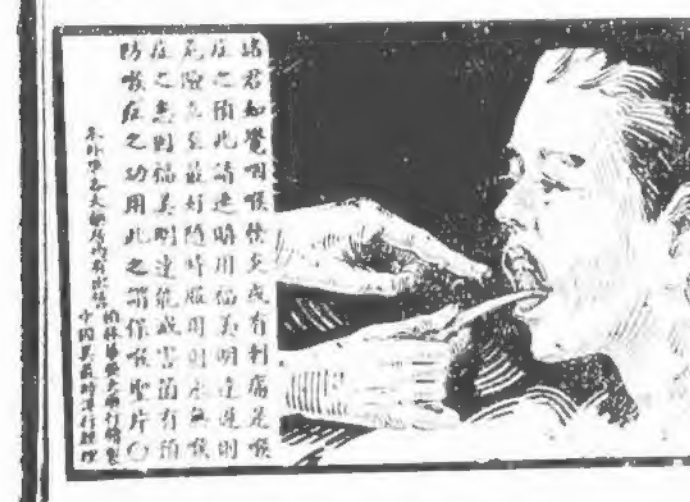 諸君如覺咽喉或有刺痛是喉
症之預請速購用福美明達遲則
危險立至最好隨時服用則永無喉
症之患則福美明達能滅害菌有預
防喉症之功用此之謂保喉聖片〇
本外埠各大藥房均有出售
柏林華發大藥行精製
中國美最時洋行經理